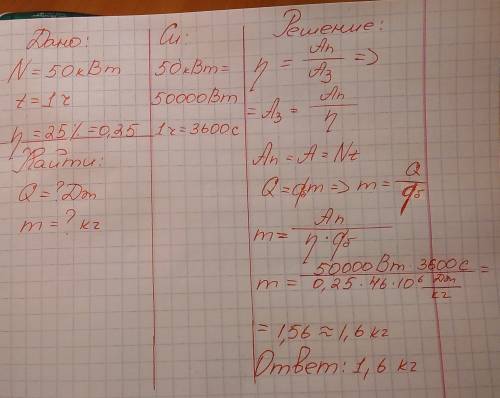 Дано:
N = 50 кВт
t = 1 ч
η = 25% = 0,25
Найти:
Q = ? Дж
m = ? кг
Си:
50 кВт =
50000 Вт
1 ч = 3600 с
Решение:
η = Aп / Aз =>
= Aз = Aп / η
Aп = A = Nt
Q = qбm => m = Q / qб
m = Aп / η · qб
m = 50000 Вт · 3600 с / 0,25 · 46 · 10⁶ Дж/кг =
= 1,56 ≈ 1,6 кг
Ответ: 1,6 кг